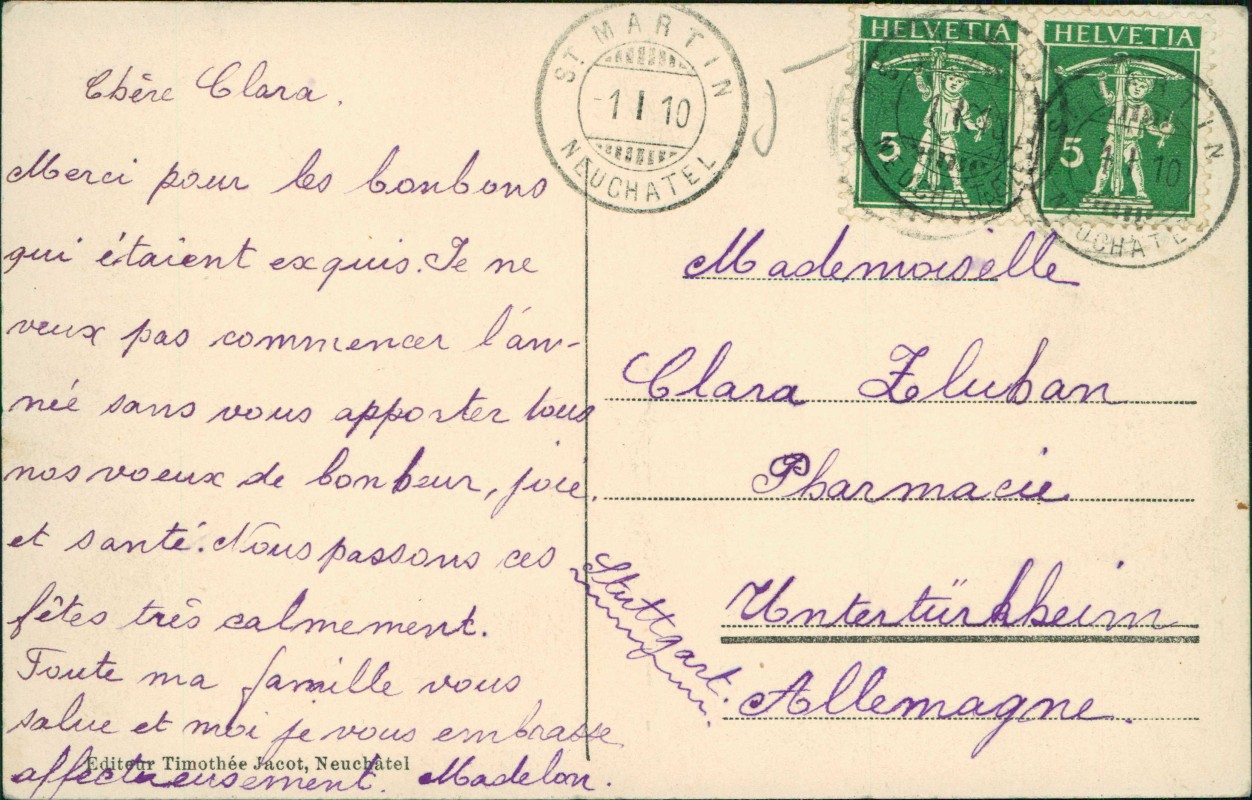 Chère Clara.
Merci pour les bonbons
qui étaient exquis. Je ne
veux pas commencer l'an-
née sans vous apporter tous
nos voeux de bonheur, joie,
et santé. Nous passons ces
fêtes très calmement.
Toute ma famille vous
salue et moi je vous embrasse
affectueusement. Madelon.
Editeur Timothée Jacot, Neuchâtel
ST MARTIN
-1 I 10
NEUCHATEL
HELVETIA
5
HELVETIA
5
Mademoiselle
Clara Zluhan
Pharmacie
Untertürkheim
Stuttgart.
Allemagne.